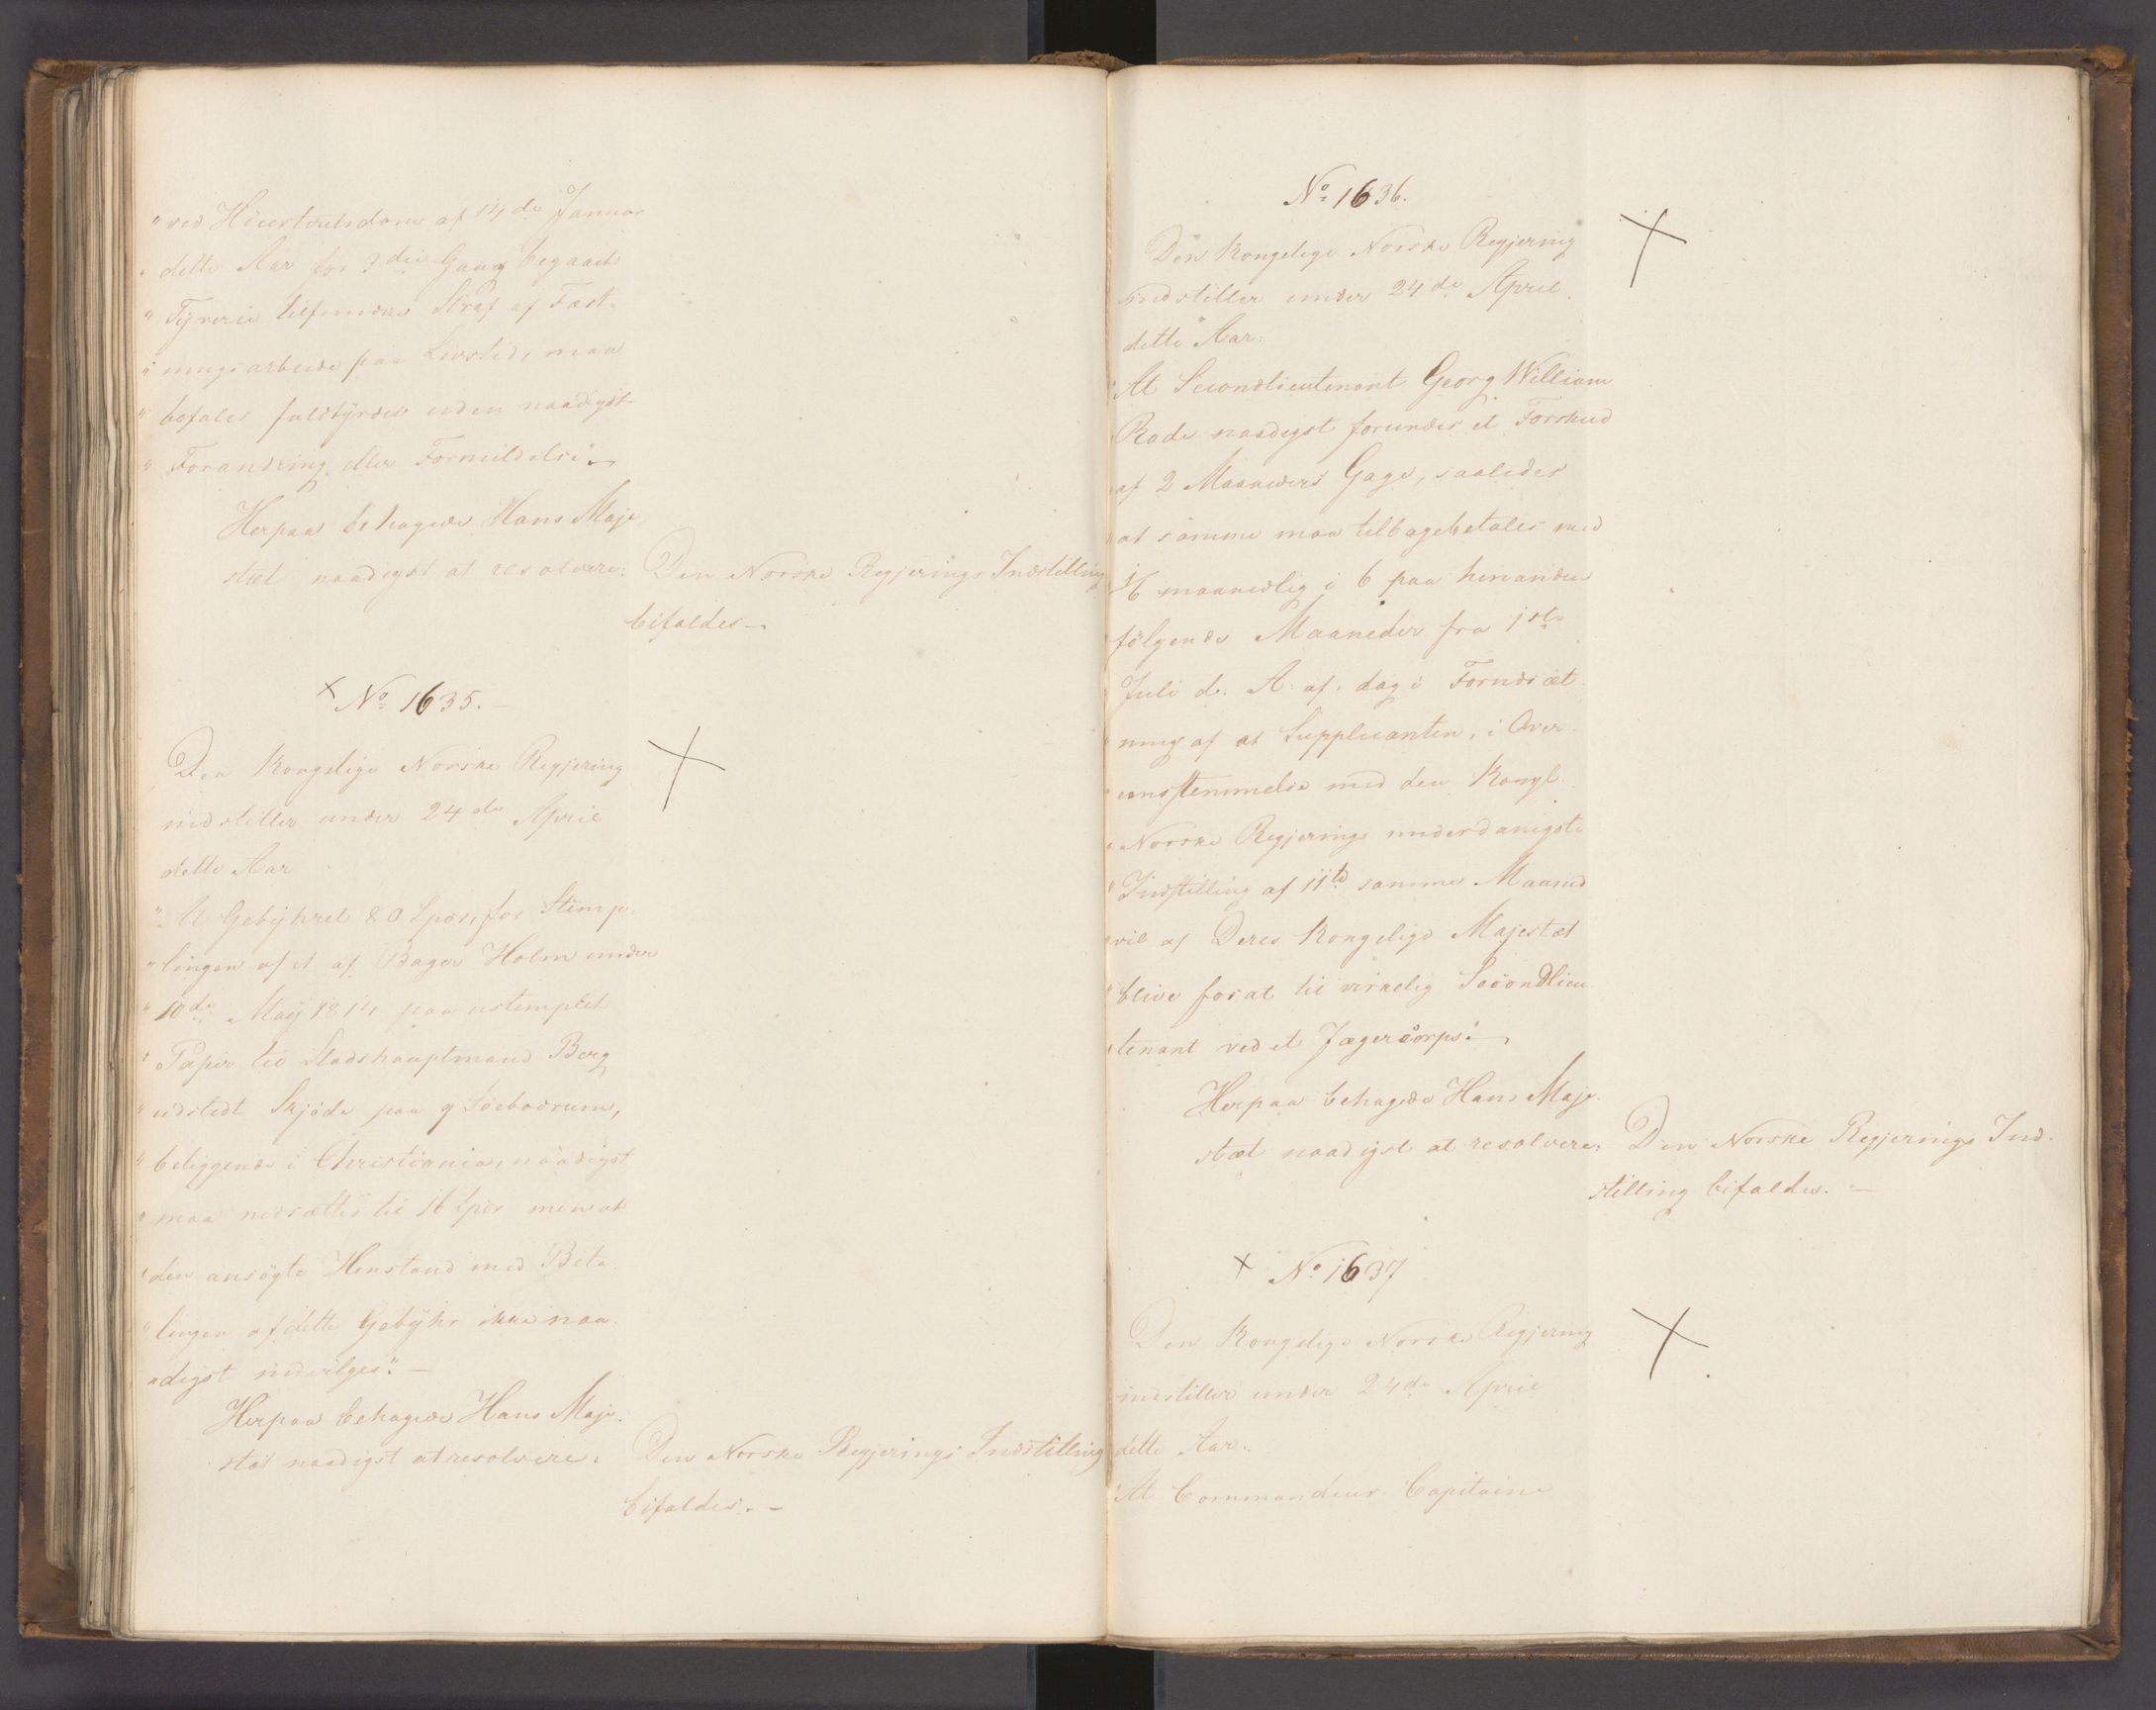 "ved Höiestretsdom af 14de Januar
" dette Aar for 3die Gang begaaet
" Tyverie tilfundne Straf af Fæst-
" ningsarbeide paa Livstid, maa
" befales fuldbyrdet uden naadigst
" Forandring eller Formildelse".
Herpaa behagede Hans Maje-
stæt naadigst at resolvere: Den Norske Regjerings Indstilling
bifaldes.-
× No 1635.-
Den Kongelige Norske Regjering
indstiller under 24de April
dette Aar
"At Gebyhret 80 Spdr, for Stemp-
"lingen af et af Bager Holm under
"10de May 1814 paa ustemplet
" Papir til Stadshauptmand Berg
" udstedt Skjöde paa 9 Söebodrum,
" beliggende i Christiania, naadigst
" maa nedsættes til 16 Spdr men at
"den ansögte Henstand med Beta-
"lingen af dette Gebyhr ikke naa-
"digst indvilges".-
Herpaa behagede Hans Maje-
stæt naadigst at resolvere: Den Norske Regjerings Indstilling
bifaldes.-
No 1636.
Den Kongelige Norske Regjering
indstiller under 24de April
dette Aar:
"At Secondlieutenant Georg William
Rode naadigst forundes et Forskud
"af 2 Maaneders Gage, saaledes
"at samme maa tilbagebetales med
1/6 maanedlig i 6 paa hinanden
"fölgende Maaneder fra 1ste
Juli d: A: af, dog i Forudsæt-
"ning af at Supplicanten, i Over-
"eensstemmelse med den Kongl.
"Norske Regjerings underdanigste
"Indstilling af 11te samme Maaned
"vil af Deres Kongelige Majestæt
"blive forsat til virkelig Secondlieu-
"tenant ved et Jægercorps".
Herpaa behagede Hans Maje-
stæt naadigst at resolvere: Den Norske Regjerings Ind-
stilling bifaldes.-
× No 1637
Den Kongelige Norske Regjering
indstiller under 24de April
dette Aar:
"At Commandeur-Capitaine